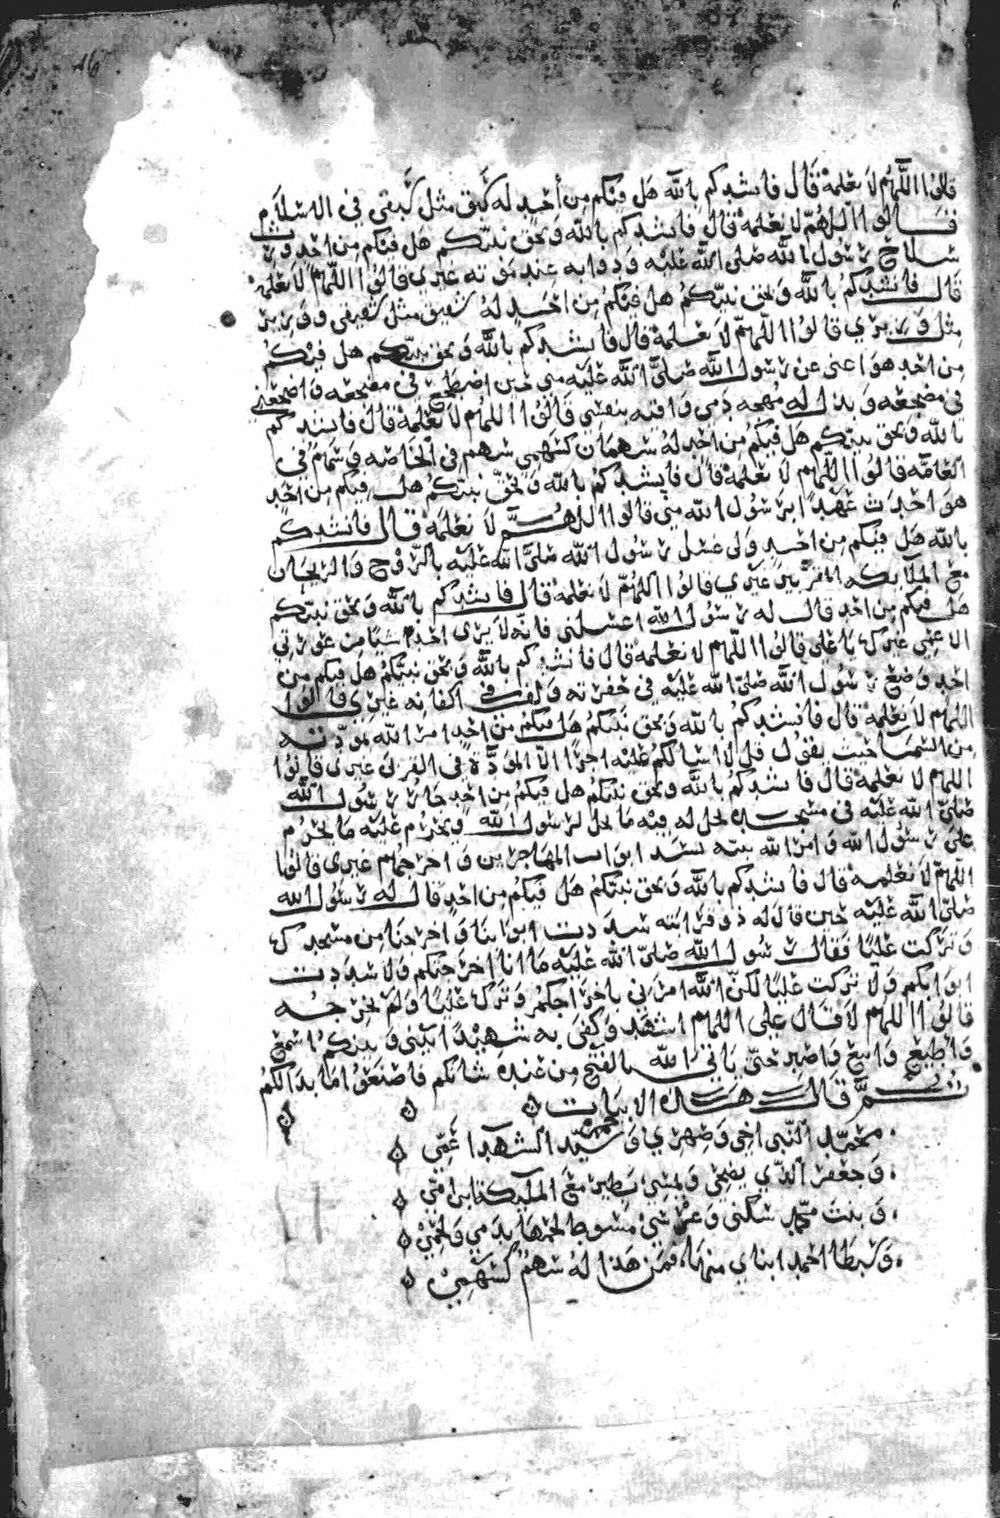 قالوا اللهم لا نعلمه قال فانشدكم بالله هل فيكم من أحد له سبق مثل سبقي في الاسلام
قالوا اللهم لا نعلمه قال فانشدكم بالله وبحق نبيكم هل فيكم من احد ورث
سلاح رسول الله صلى الله عليه ودوابه عند موته غيري قالوا اللهم لا نعلمه
قال فانشدكم بالله وبحق نبيكم هل فيكم من احد له شقيق مثل شقيقي ووزير
مثل وزيري قالوا اللهم لا نعلمه قال فانشدكم بالله وبحق نبيكم هل فيكم
من احد هو اغنى عن رسول الله صلى الله عليه مني حين اضطجع في مضجعه واضجعني
في مضجعه وبذلت له مهجة دمي وافيه بنفسي قالوا اللهم لا نعلمه قال فانشدكم
بالله وبحق نبيكم هل فيكم من احد له سهمان كسهمي سهم في الخاصه وسهم في
العامه قالوا اللهم لا نعلمه قال فانشدكم بالله وبحق نبيكم هل فيكم من احد
هو احدث عهدا برسول الله مني قالوا اللهم لا نعلمه قال فانشدكم
بالله هل فيكم من احد ولي غسل رسول الله صلى الله عليه بالروح والريحان
مع الملايكه المقربين غيري قالوا اللهم لا نعلمه قال فانشدكم بالله وبحق نبيكم
هل فيكم من احد قال له رسول الله اغسلني فانه لا يرى احد شيا من عورتي
الا عمي غيرك يا علي قالوا اللهم لا نعلمه قال فانشدكم بالله وبحق نبيكم هل فيكم من
احد وضع رسول الله صلى الله عليه في حفرته ولفه في اكفانه غيري قالوا
اللهم لا نعلمه قال فانشدكم بالله وبحق نبيكم هل فيكم من احد امر الله بمودته
من السما حيث يقول قل لا اسالكم عليه اجرا الا المودة في القربى غيري قالوا
اللهم لا نعلمه قال فانشدكم بالله وبحق نبيكم هل فيكم من احد جار رسول الله
صلى الله عليه في مسجده يحل له فيه ما يحل لرسول الله ويحرم عليه ما يحرم
على رسول الله وامر الله نبيه بسد ابواب المهاجرين واخرجهم غيري قالوا
اللهم لا نعلمه قال فانشدكم بالله وبحق نبيكم هل فيكم من احد قال له رسول الله
صلى الله عليه حين قال له ذو قرابته سددت ابوابنا واخرجتنا من مسجدك
وتركت عليا فقال رسول الله صلى الله عليه ما انا اخرجتكم ولا سددت
ابوابكم ولا تركت عليا لكن الله امرني باخراجكم وترك عليا ولم يخرجه
قالوا اللهم لا قال علي اللهم اشهد وكفى به شهيدا بيني وبينكم اسمع
واطيع وابيع واصبر حتى ياتي الله بالفتح من عنده شانكم فاصنعوا ما بدا لكم
ثم قال هذه الابيات
محمد النبي اخي وصهري وحمزة سيد الشهدا عمي
وجعفر الذي يضحى ويمسي يطير مع الملايكة ابن امي
وبنت محمد سكني وعرسي مشوط لحمها بدمي ولحمي
وسبطا احمد ابناي منها فمن هذا له سهم كسهمي